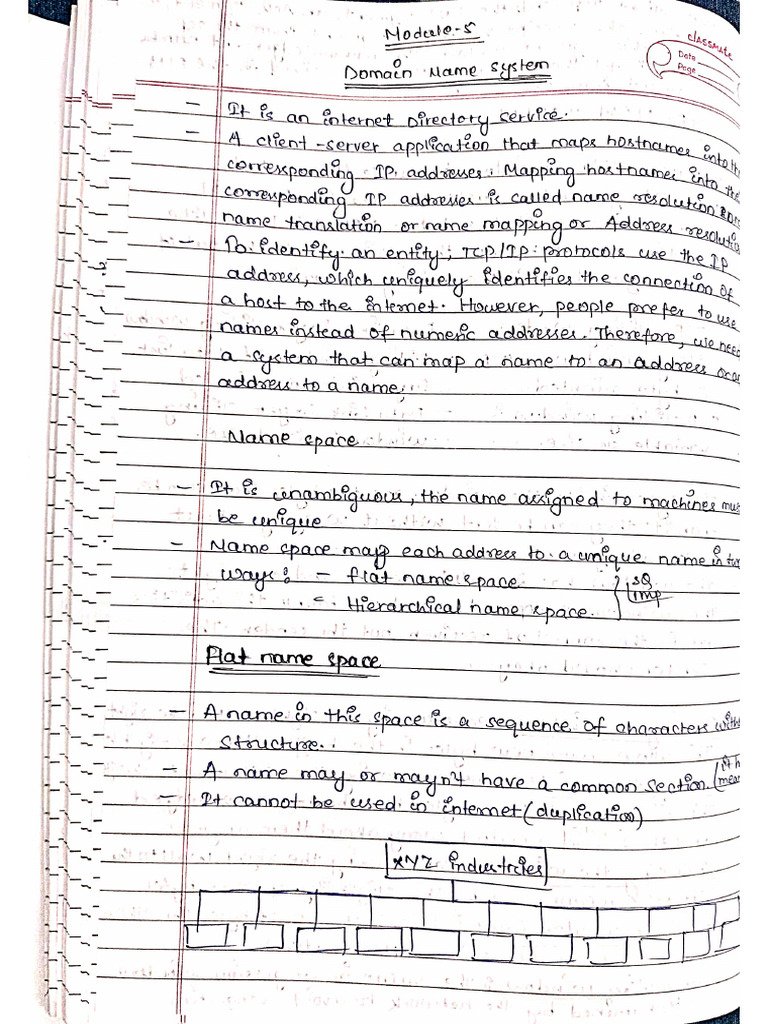 Module-5
classmate
Date
Page
Domain Name System
- It is an internet Directory service.
- A client-server application that maps hostnames into the
corresponding IP addresses. Mapping hostnames into the
corresponding IP addresses is called name resolution
name translation or name mapping or Address resolution
- To identify an entity, TCP/IP protocols use the IP
address, which uniquely identifies the connection of
a host to the internet. However, people prefer to use
names instead of numeric addresses. Therefore, we need
a system that can map a name to an address or an
address to a name.
Name space
- It is unambiguous, the name assigned to machines must
be unique
- Name space map each address to a unique name in two
ways: - flat name space
- Hierarchical name space.
SQ
imp
Flat name space
- A name in this space is a sequence of characters
structure.
- A name may or mayn't have a common section.
- It cannot be used in internet (duplication)
XYZ industries